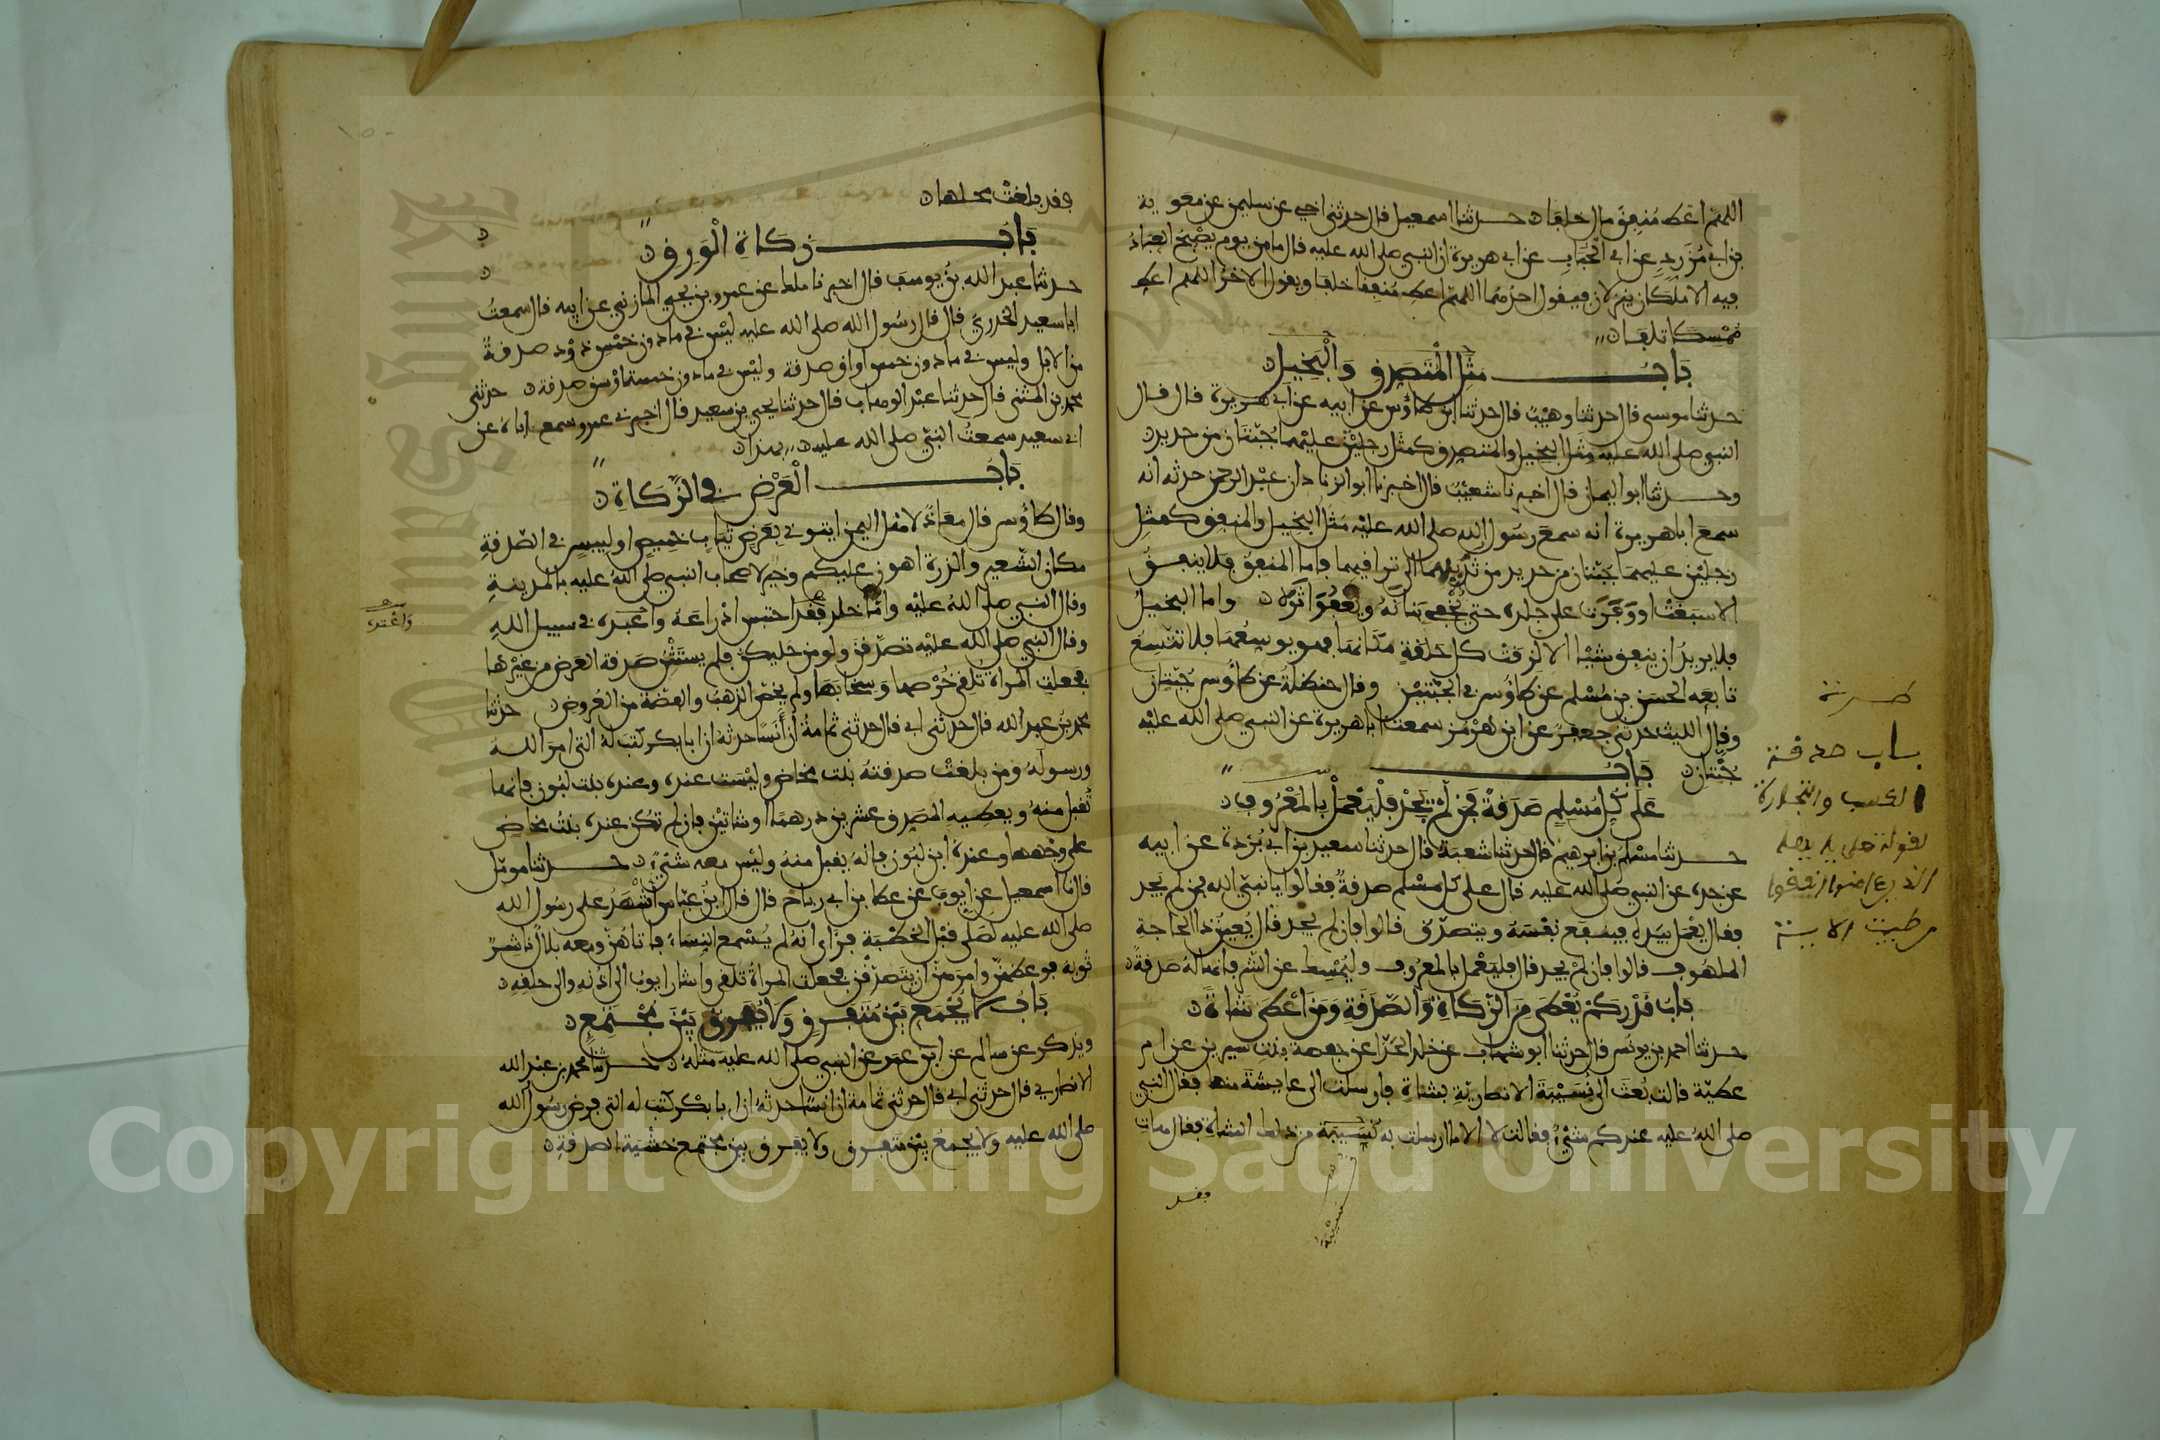 اللهم اعط منفق مال خلفا حدثنا اسمعيل قال حدثني اخي عن سليمن عن معوية
بن ابي مزرد عن ابي الحباب عن ابي هريرة ان النبي صلى الله عليه قال ما من يوم يصبح العباد
فيه الا ملكان ينزلان فيقول احدهما اللهم اعط منفقا خلفا ويقول الاخر اللهم اعط
ممسكا تلفا
باب مثل المتصدق والبخيل
حدثنا موسى قال حدثنا وهيب قال حدثنا ابن طاوس عن ابيه عن ابي هريرة قال قال
النبي صلى الله عليه مثل البخيل والمتصدق كمثل رجلين عليهما جبتان من حديد
وحدثنا ابو اليمان قال اخبرنا شعيب قال اخبرنا ابو الزناد ان عبد الرحمن حدثه انه
سمع ابا هريرة انه سمع رسول الله صلى الله عليه مثل البخيل والمنفق كمثل
رجلين عليهما جبتان من حديد من ثديهما الى تراقيهما فاما المنفق فلا ينفق
الا سبغت او وفرت على جلده حتى تخفي بنانه وتعفو اثره واما البخيل
فلا يريد ان ينفق شيئا الا لزقت كل حلقة مكانها فهو يوسعها فلا تتسع
تابعه الحسن بن مسلم عن طاوس في الجبتين وقال حنظلة عن طاوس جنتان
وقال الليث حدثني جعفر عن ابن هرمز سمعت ابا هريرة عن النبي صلى الله عليه
جنتان باب
على كل مسلم صدقة فمن لم يجد فليعمل بالمعروف
حدثنا مسلم بن ابرهيم قال حدثنا شعبة قال حدثنا سعيد بن ابي بردة عن ابيه
عن جده عن النبي صلى الله عليه قال على كل مسلم صدقة فقالوا يا نبي الله فمن لم يجد
فقال يعمل بيده فينفع نفسه ويتصدق قالوا فان لم يجد قال يعين ذا الحاجة
الملهوف قالوا فان لم يجد قال فليعمل بالمعروف وليمسك عن الشر فانها له صدقة
باب قدر كم يعطى من الزكاة والصدقة ومن اعطى شاة
حدثنا احمد بن يونس قال حدثنا ابو شهاب عن خلد الحذا عن حفصة بنت سيرين عن ام
عطية قالت بعث الى نسيبة الانصارية بشاة فارسلت الى عايشة منها فقال النبي
صلى الله عليه عندكم شيء فقالت لا الا ما ارسلت به نسيبة من ذلك الشاة فقال هات
فقد
نسيبة
باب صدقة
الكسب والتجارة
لقوله تعلى
الذين امنوا انفقوا
من طيبت الاية
فقد بلغت محلها
باب زكاة الورق
حدثنا عبد الله بن يوسف قال اخبرنا ملك عن عمرو بن يحيى المازني عن ابيه قال سمعت
ابا سعيد الخدري قال قال رسول الله صلى الله عليه ليس في ما دون خمس ذود صدقة
من الابل وليس في ما دون خمس اواق صدقة وليس في ما دون خمسة اوسق صدقة حدثني
محمد بن المثنى قال حدثنا عبد الوهاب قال حدثنا يحيى بن سعيد قال اخبرني عمرو سمع اباه عن
ابي سعيد سمعت النبي صلى الله عليه بهذا
باب العرض في الزكاة
وقال طاوس قال معاذ لاهل اليمن ايتوني بعرض ثياب خميص او لبيس في الصدقة
مكان الشعير والذرة اهون عليكم وخير لاصحاب النبي صلى الله عليه بالمدينة
وقال النبي صلى الله عليه واما خلد فقد احتبس ادراعه واعبده في سبيل الله
وقال النبي صلى الله عليه تصدقن ولو من حليكن فلم يستثن صدقة العرض من غيرها
فجعلت المراة تلقي خرصها وسخابها ولم يخص الذهب والفضة من العروض حدثنا
محمد بن عبد الله قال حدثني ابي قال حدثني ثمامة ان انسا حدثه ان ابا بكر كتب له التي امر الله
ورسوله ومن بلغت صدقته بنت مخاض وليست عنده وعنده بنت لبون فانها
تقبل منه ويعطيه المصدق عشرين درهما او شاتين فان لم تكن عنده بنت مخاض
على وجهها وعنده ابن لبون فانه يقبل منه وليس معه شيء حدثنا مومل
قال نا اسمعيل عن ايوب عن عطا بن ابي رباح قال قال ابن عباس اشهد على رسول الله
صلى الله عليه لصلى قبل الخطبة فراى انه لم يسمع النساء فاتاهن ومعه بلال ناشر
ثوبه فوعظهن وامرهن ان يتصدقن فجعلت المراة تلقي واشار ايوب الى اذنه والى حلقه
باب لا يجمع بين متفرق ولا يفرق بين مجتمع
ويذكر عن سالم عن ابن عمر عن النبي صلى الله عليه مثله حدثنا محمد بن عبد الله
الانصاري قال حدثني ابي قال حدثني ثمامة ان انسا حدثه ان ابا بكر كتب له التي فرض رسول الله
صلى الله عليه ولا يجمع بين متفرق ولا يفرق بين مجتمع خشية الصدقة
واعتده
Copyright © King Saud University